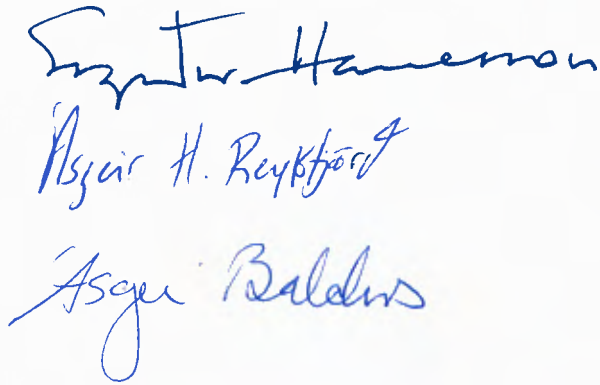 Hannesson
Ásgeir H. Reykfjörð
Ásgeir Baldurs